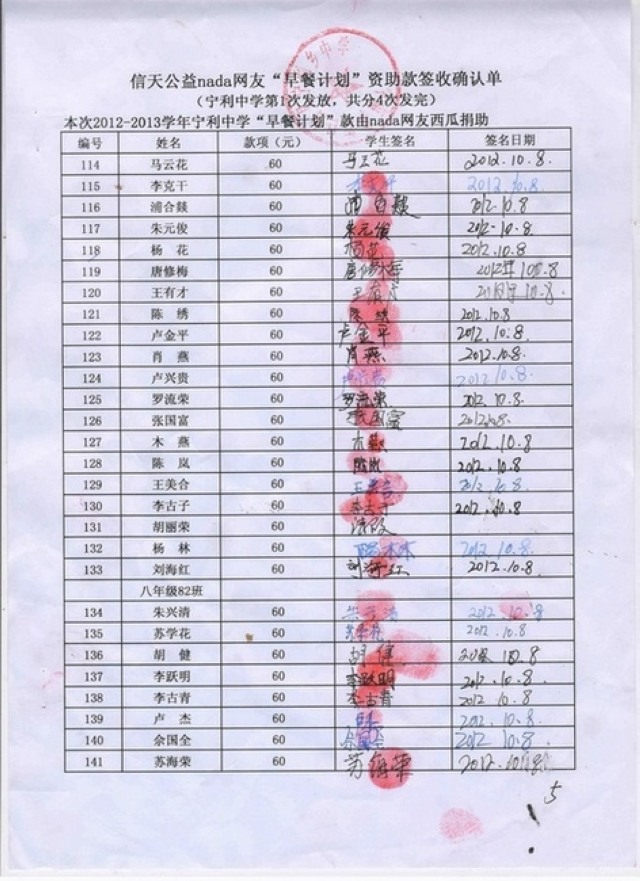 信天公益nada网友“早餐计划”资助款签收确认单
(宁利中学第1次发放，共分4次发完)
本次2012-2013学年宁利中学“早餐计划”款由nada网友西瓜捐助
编号 姓名 款项（元） 学生签名 签名日期
114 马云花 60 马云花 2012.10.8.
115 李克干 60 2012.10.8.
116 浦合燚 60 2012.10.8
117 朱元俊 60 朱元俊 2012.10.8
118 杨花 60 杨花 2012.10.8
119 唐修梅 60 唐修梅 2012年10.8
120 王有才 60 王有才 10.8.
121 陈绣 60 陈绣 2012.10.8
122 卢金平 60 卢金平 2012.10.8.
123 肖燕 60 肖燕 2012.10.8.
124 卢兴贵 60 2012.10.8
125 罗流荣 60 罗流荣 2012.10.8.
126 张国富 60 张国富
127 木燕 60 木燕 2012.10.8
128 陈岚 60 陈岚 2012.10.8
129 王美合 60 王美合 2012.10.8
130 李古子 60 李古子 2012.10.8
131 胡丽荣 60
132 杨林 60 杨林 2012.10.8
133 刘海红 60 刘海红 2012.10.8.
八年级82班
134 朱兴清 60 朱兴清 2012.10.8
135 苏学花 60 苏学花 2012.10.8
136 胡健 60 胡健 10.8
137 李跃明 60 李跃明 2012.10.8
138 李古青 60 李古青 2012.10.8
139 卢杰 60 2012.10.8.
140 佘国全 60 佘国全 2012.10.8.
141 苏海荣 60 苏海荣 2012.10.8
5